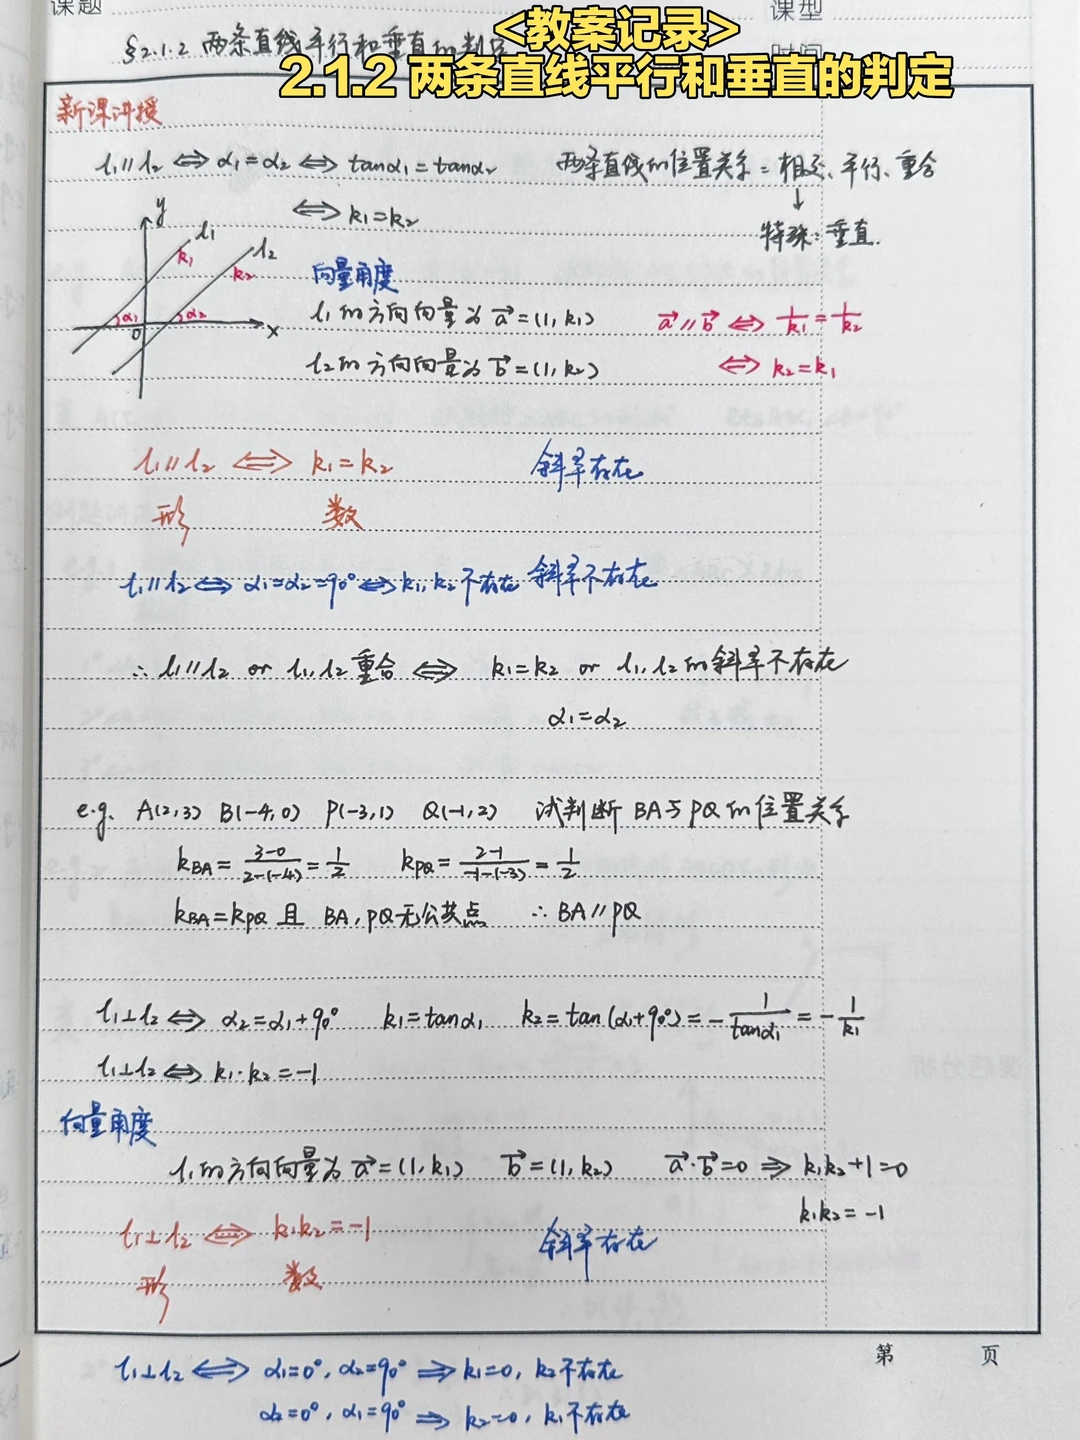 课题
课型
<教案记录>
§2.1.2 两条直线平行和垂直的判定
时间
2.1.2 两条直线平行和垂直的判定
新课讲授
l₁∥l₂ ⇔ α₁=α₂ ⇔ tanα₁=tanα₂
两条直线的位置关系:相交、平行、重合
⇔ k₁=k₂
↓
特殊:垂直.
y
l₁
l₂
k₁
k₂
α₁
α₂
0
x
向量角度
l₁的方向向量为 a⃗=(1,k₁)
a⃗∥b⃗ ⇔ 1/k₁=1/k₂
l₂的方向向量为 b⃗=(1,k₂)
⇔ k₂=k₁
l₁∥l₂ ⇔ k₁=k₂ 斜率存在
形 数
l₁∥l₂ ⇔ α₁=α₂=90° ⇔ k₁,k₂不存在 斜率不存在
∴ l₁∥l₂ or l₁,l₂重合 ⇔ k₁=k₂ or l₁,l₂的斜率不存在
α₁=α₂
e.g. A(2,3) B(-4,0) P(-3,1) Q(-1,2) 试判断 BA与PQ的位置关系
k_BA=(3-0)/(2-(-4))=1/2 k_PQ=(2-1)/(-1-(-3))=1/2
k_BA=k_PQ 且 BA,PQ无公共点 ∴ BA∥PQ
l₁⊥l₂ ⇔ α₂=α₁+90° k₁=tanα₁ k₂=tan(α₁+90°)=-1/tanα₁=-1/k₁
l₁⊥l₂ ⇔ k₁·k₂=-1
向量角度
l₁的方向向量为 a⃗=(1,k₁) b⃗=(1,k₂) a⃗·b⃗=0 ⇒ k₁k₂+1=0
k₁k₂=-1
l₁⊥l₂ ⇔ k₁k₂=-1 斜率存在
形 数
第 页
l₁⊥l₂ ⇔ α₁=0°,α₂=90° ⇒ k₁=0,k₂不存在
α₂=0°,α₁=90° ⇒ k₂=0,k₁不存在